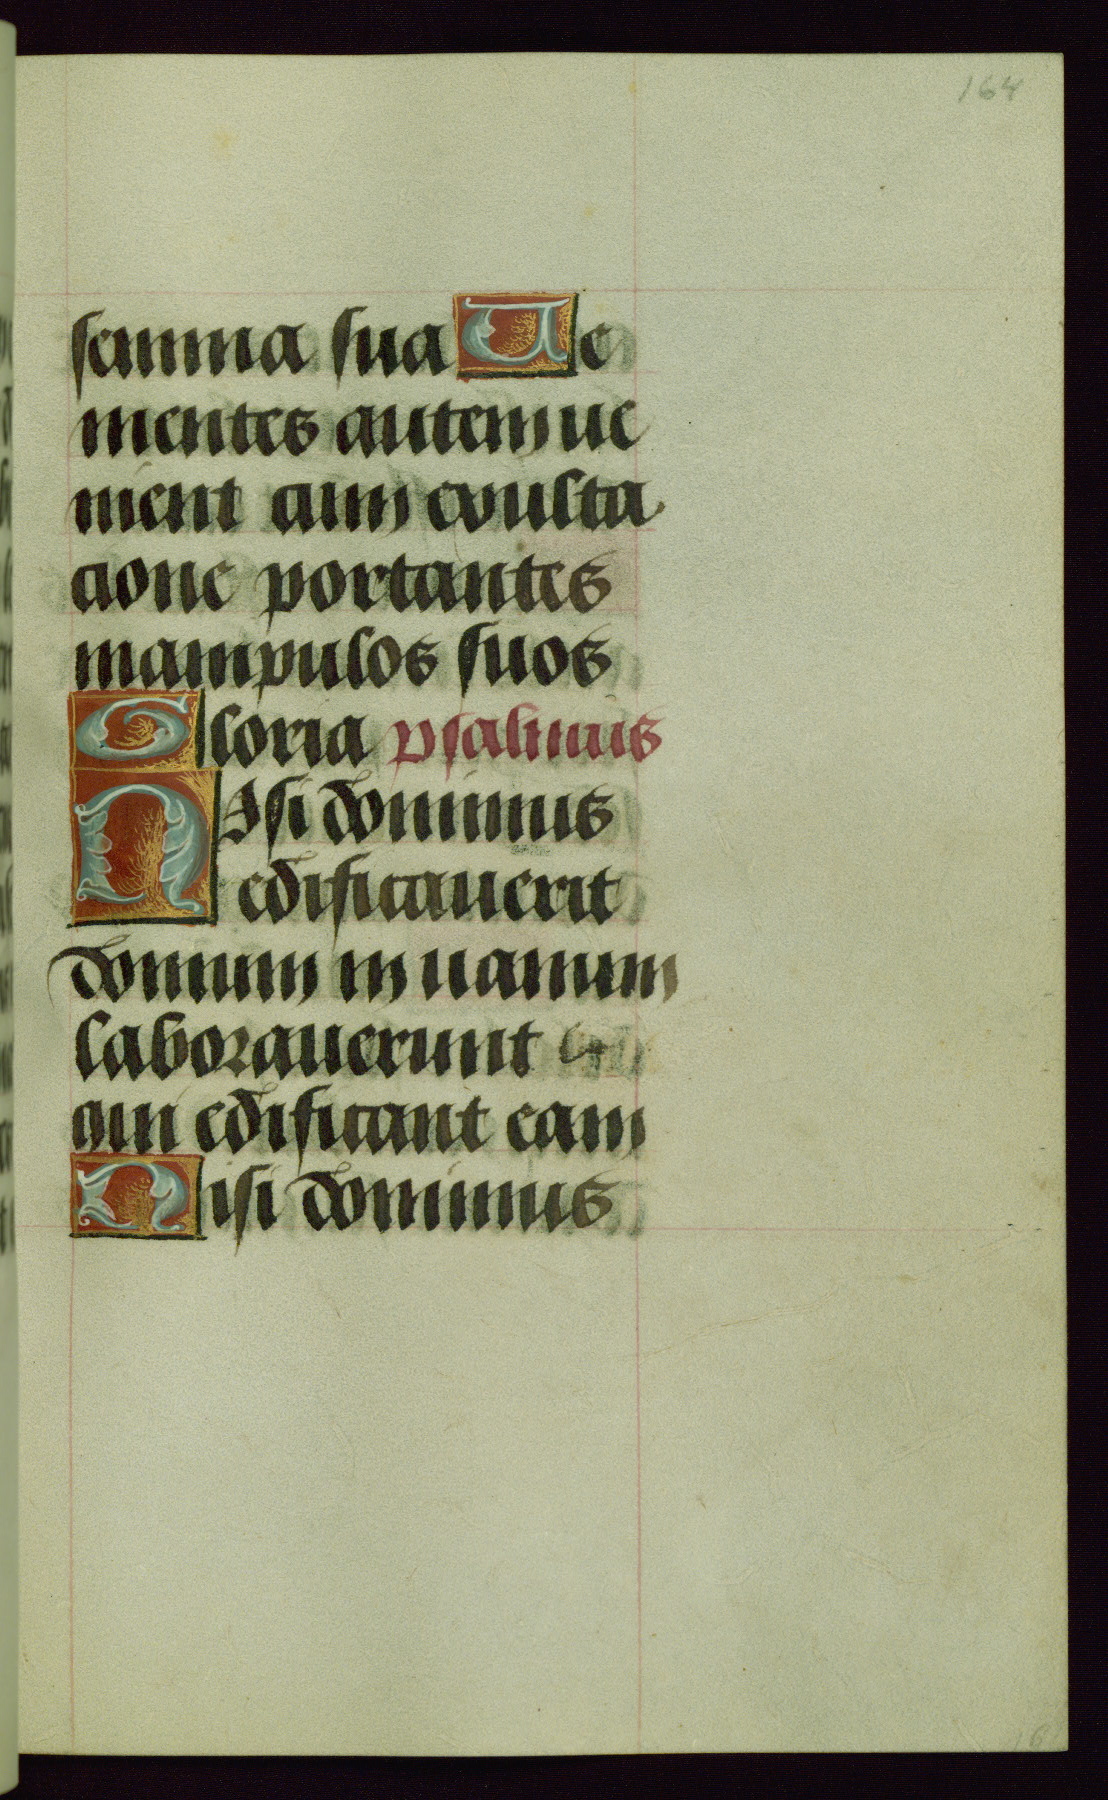 164
semina sua Ue
nientes autem ue
nient cum exulta
cione portantes
manipulos suos
Gloria psalmus
NIsi dominus
edificauerit
domum in uanum
laborauerunt
qui edificant eam
Nisi dominus